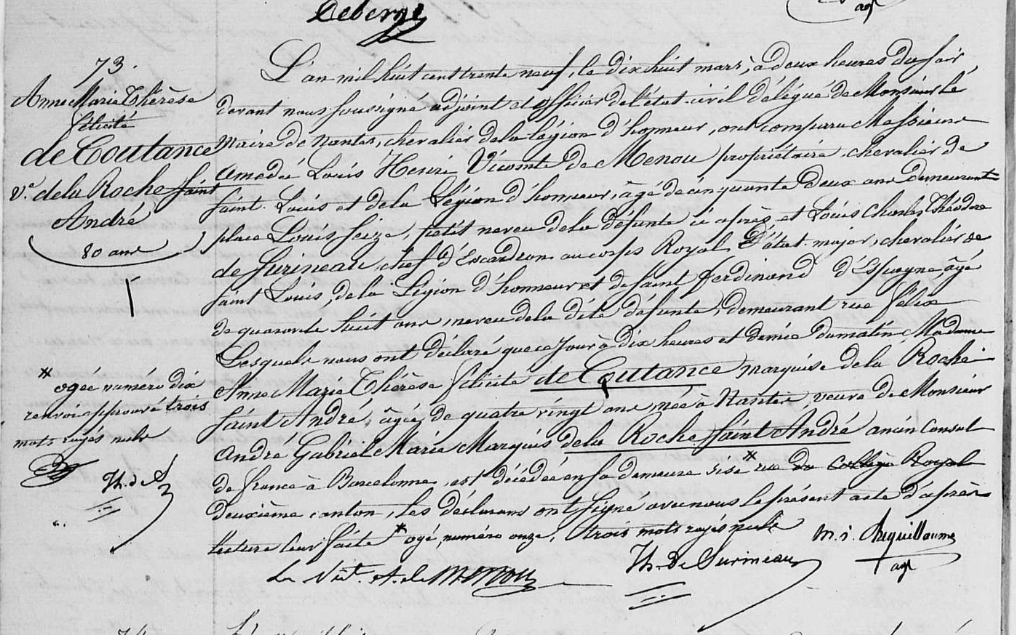 Deberge
73.
Anne Marie Thérèse
félicité
de Coutance
Ve. de la Roche Saint
André
80 ans
L'an mil huit cent trente neuf, le dix huit mars, à deux heures du soir
devant nous soussigné adjoint et officier de l'état civil délégué de Monsieur le
Maire de Nantes, chevalier de la légion d'honneur, ont comparu Messieurs
Amédé Louis Henri Vicomte de Menou propriétaire, chevalier de
Saint Louis et de la Légion d'honneur, âgé de cinquante deux ans demeurant
place Louis Seize, petit neveu de la défunte ci après, et Louis Charles Théodore
de Surineau, chef d'Escardron au corps Royal D'état-major, chevalier de
Saint Louis, de la Légion d'honneur et de Saint ferdinand d'Espagne âgé
de quarante huit ans, neveu de la dite défunte, demeurant rue félix
Lesquels nous ont déclaré que ce jour à dix heures et demie du matin, Madame
Anne Marie Thérèse félicité de Coutance marquise de la Roche
Saint André, âgée de quatre vingt ans, née à Nantes, veuve de Monsieur
André Gabriel Marie Marquis de la Roche Saint André ancien Consul
de france à Barcelonne, est décédée en sa demeure sise * rue du Collège Royal
deuxième canton, les déclarans ont signé avec nous le présent acte d'après
lecture leur faite * ogé numéro onze, trois mots rayés nuls
* ogée numéro dix
renvoi approuvé trois
mots rayés nuls
Th. de S
Le Vict. A. de Menou
Th. De Surineau
agt
74